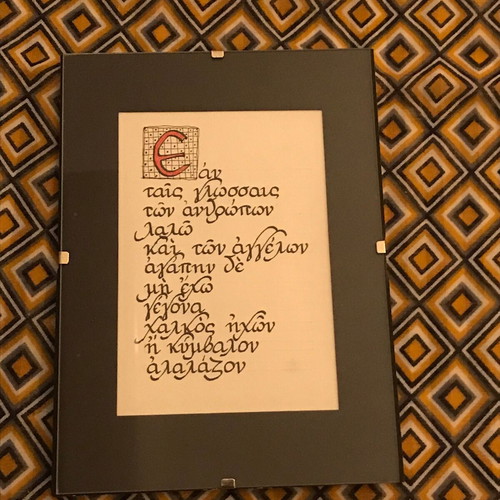 Ἐάν
ταῖς γλώσσαις
τῶν ἀνθρώπων
λαλῶ
καὶ τῶν ἀγγέλων
ἀγάπην δὲ
μὴ ἔχω
γέγονα
χαλκὸς ἠχῶν
ἢ κύμβαλον
ἀλαλάζον